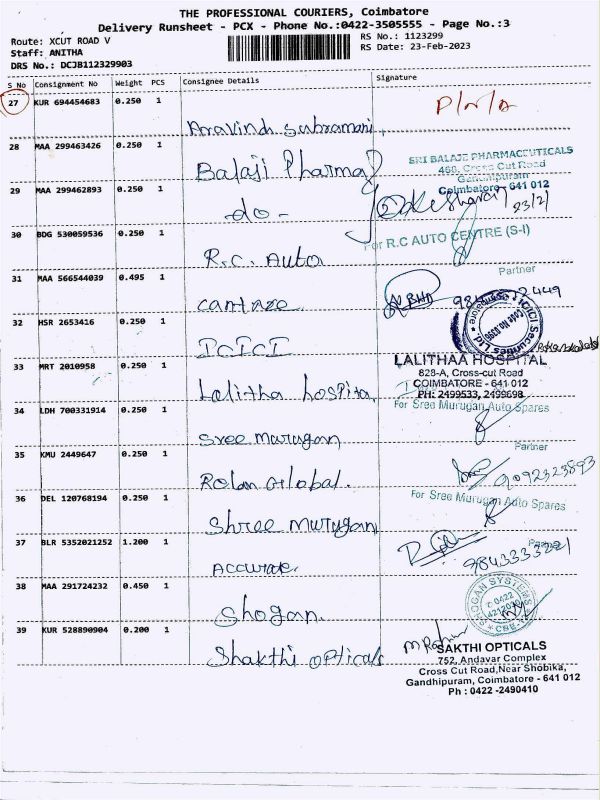 THE PROFESSIONAL COURIERS, Coimbatore
Delivery Runsheet - PCX - Phone No.:0422-3505555 - Page No.:3
Route: XCUT ROAD V
RS No.: 1123299
Staff: ANITHA
RS Date: 23-Feb-2023
DRS No.: DCJB112329903
S No Consignment No Weight PCS Consignee Details Signature
27 KUR 694454683 0.250 1
Aravind Subramani
28 MAA 299463426 0.250 1
Balaji Pharma
SRI BALAJE PHARMACEUTICALS
460, Cross Cut Road
Gandhipuram
Coimbatore - 641 012
29 MAA 299462893 0.250 1
do -
23/2/
30 BDG 530059536 0.250 1
R.C. Auto
For R.C AUTO CENTRE (S-I)
Partner
31 MAA 566544039 0.495 1
32 HSR 2653416 0.250 1
ICICI
ICICI Securities Ltd
33 MRT 2010958 0.250 1
Lalitha hospital
LALITHAA HOSPITAL
828-A, Cross-cut Road
COIMBATORE - 641 012
PH: 2499533, 2499698
34 LDH 700331914 0.250 1
Sree murugan
For Sree Murugan Auto Spares
Partner
35 KMU 2449647 0.250 1
Rolan Global.
9092323893
36 DEL 120768194 0.250 1
Shree murugan
For Sree Murugan Auto Spares
37 BLR 5352021252 1.200 1
Accurate.
38 MAA 291724232 0.450 1
Shogan.
SHOGAN SYSTEMS
39 KUR 528890904 0.200 1
Shakthi opticals
SAKTHI OPTICALS
752, Andavar Complex
Cross Cut Road,Near Shobika,
Gandhipuram, Coimbatore - 641 012
Ph : 0422 -2490410